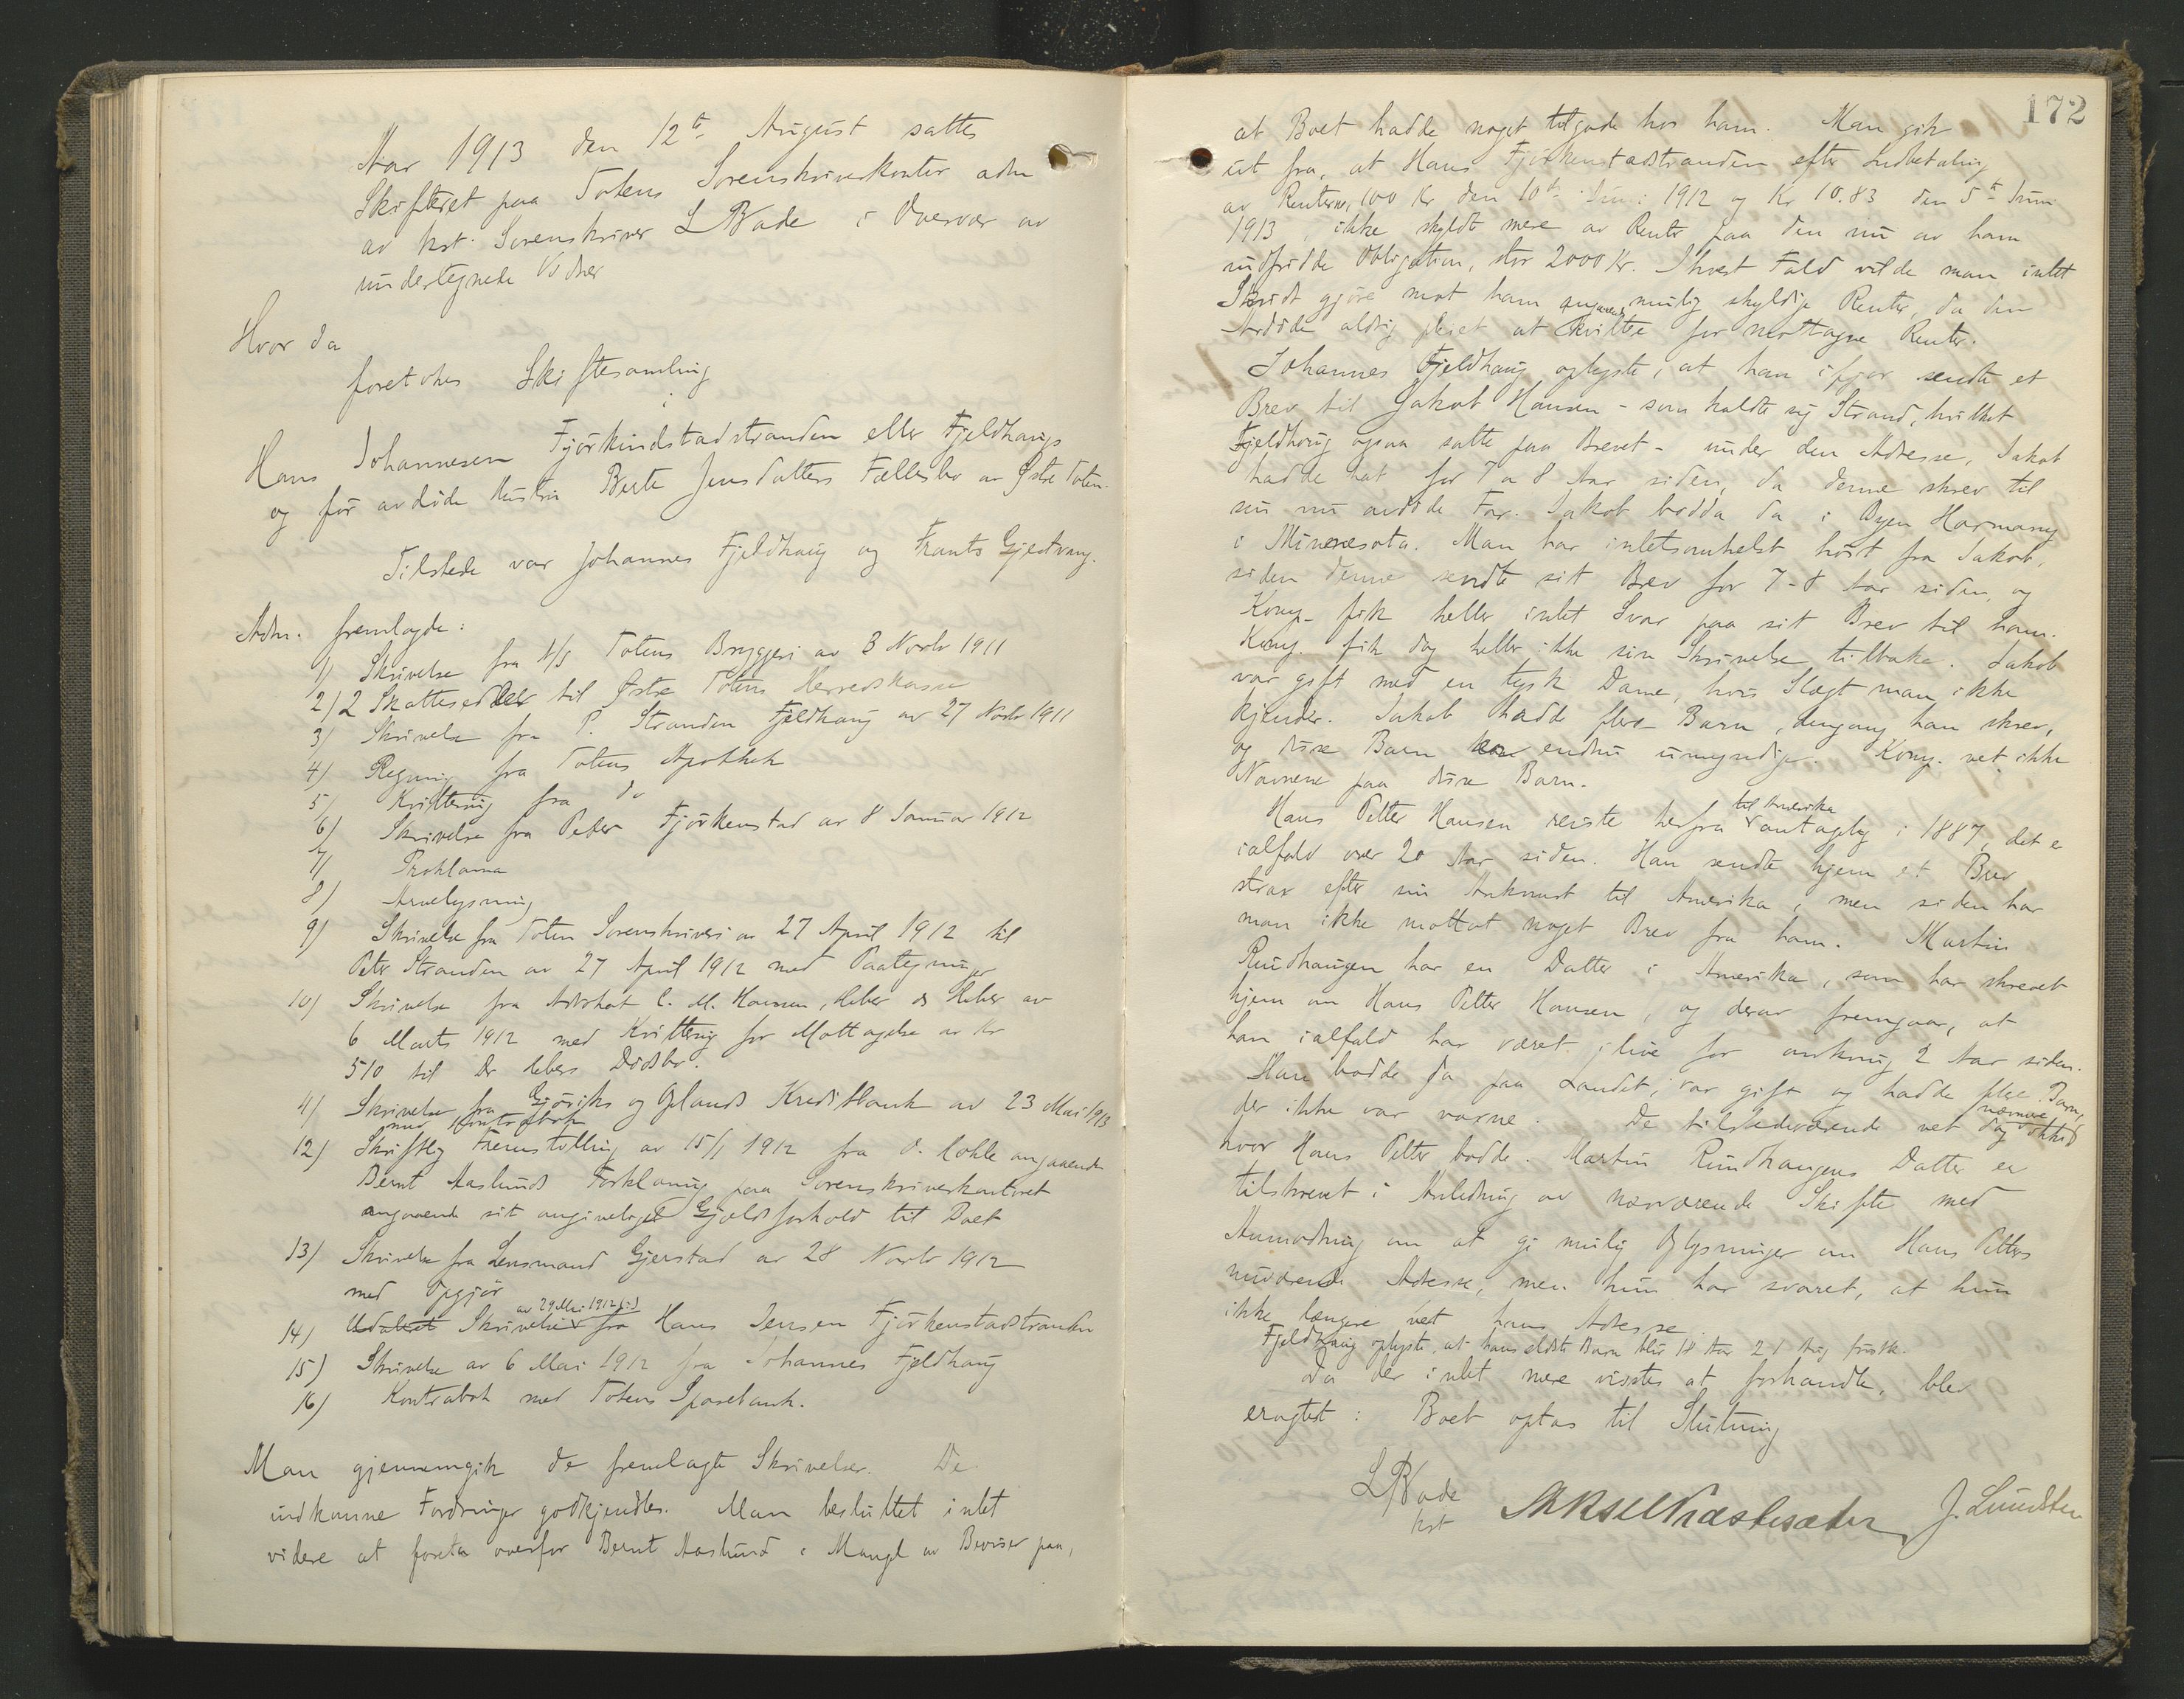 Aar 1913 den 12te August sattes
Skifteret paa Totens Sorenskriverkontor adm
av kst. Sorenskriver L Rode i Overvær av
undertegnede Vidner
Hvor da
foretokes Skiftesamling
i
Hans Johannesen Fjörkindstadstranden eller Fjeldhaugs
og för avdöde Hustru Berte Jensdatters Fællesbo av Østre Toten.
Tilstede var Johannes Fjeldhaug og Frants Gjestvang.
Adm. fremlagde:
1) Skrivelse fra A/S Totens Bryggeri av 3 Novbr 1911
2) 2 Skattesedler til Østre Totens Herredskasse
3) Skrivelse fra P. Stranden Fjeldhaug av 27 Novbr 1911
4) Regning fra Totens Apothek
5) Kvittering fra do
6) Skrivelse fra Peter Fjörkenstad av 8 Januar 1912
7) Proklama
8) Arvelysning
9) Skrivelse fra Toten Sorenskriveri av 27 April 1912 til
Peter Stranden av 27 April 1912 med Paategning
10) Skrivelse fra Advokat C. M. Hansen, av
6 Marts 1912 med Kvittering for Mottagelse av Kr
510 til Dödsbo.
11) Skrivelse fra Gjöviks og Oplands Kreditbank av 23 Mai 1913
med Kontrabok
12) Skriftlig Fremstilling av 15/1 1912 fra O. angaaende
Bernt Aaslunds Forklaring paa Sorenskriverkontoret
angaaende sit angivelige Gjældsforhold til Boet
13) Skrivelse fra Lensmand Gjerstad av 28 Novbr 1912
med Opgjör
14) Udatert Skrivelse av 29 Mai 1912 (:) fra Hans Jensen Fjörkenstadstranden
15) Skrivelse av 6 Mai 1912 fra Johannes Fjeldhaug
16) Kontrabok med Totens Sparebank.
Man gjennemgik de fremlagte Skrivelser. De
indkomne Fordringer godkjendtes. Man besluttet intet
videre at foreta overfor Bernt Aaslund i Mangel av Beviser paa,
172
at Boet hadde noget tilgode hos ham. Man gik
ut fra, at Hans Fjörkenstadstranden efter Indbetaling
av Renterne, 100 Kr den 10de Juni 1912 og Kr 10.83 den 5te Juni
1913, ikke skyldte mere av Renter paa den nu av ham
indfridde Obligation, stor 2000 Kr. I hvert Fald vilde man intet
Skridt gjöre mot ham angaaende mulig skyldige Renter, da den
Avdöde aldrig pleiet at kvittere for mottagne Renter.
Johannes Fjeldhaug oplyste, at han ifjor sendte et
Brev til Jakob Hansen - som kaldte sig Strand, hvilket
Fjeldhaug ogsaa satte paa Brevet - under den Adresse, Jakob
hadde hat for 7 a 8 Aar siden, da denne skrev til
sin nu avdöde Far. Jakob bodde da i Byen Harmany
i Minnesota. Man har intetsomhelst hört fra Jakob,
siden denne sendte sit Brev for 7-8 Aar siden, og
Komp. fik heller intet Svar paa sit Brev til ham.
Komp. fik dog heller ikke sin Skrivelse tilbake. Jakob
var gift med en tysk Dame, hvis Slægt man ikke
kjender. Jakob hadde flere Barn, dengang han skrev,
og disse Barn endnu umyndige. Komp. vet ikke
Navnene paa disse Barn.
Hans Petter Hansen reiste herfra til Amerika antagelig i 1887, det er
ialfald over 20 Aar siden. Han sendte hjem et Brev
strax efter sin Ankomst til Amerika, men siden har
man ikke mottat noget Brev fra ham. Martin
Rundhaugen har en Datter i Amerika, som har skrevet
hjem om Hans Petter Hansen, og derav fremgaar, at
han ialfald har været ilive for omkring 2 Aar siden.
Han bodde da paa Landet, var gift og hadde flere Barn,
der ikke var voxne. De tilstedeværende vet dog ikke nærmere
hvor Hans Petter bodde. Martin Rundhaugens Datter er
tilskrevet i Anledning av nærværende Skifte med
Anmodning om at gi mulig Oplysninger om Hans Petters
nuværende Adresse, men hun har svaret, at hun
ikke længere vet hans Adresse
Fjeldhaug oplyste, at hans eldste Barn blir 18 Aar 21 Aug förstk.
Da der intet mere visstes at forhandle, blev
eragtet: Boet optas til Slutning
L Rode
kst
Aksel Præstesæter J. Lundsten